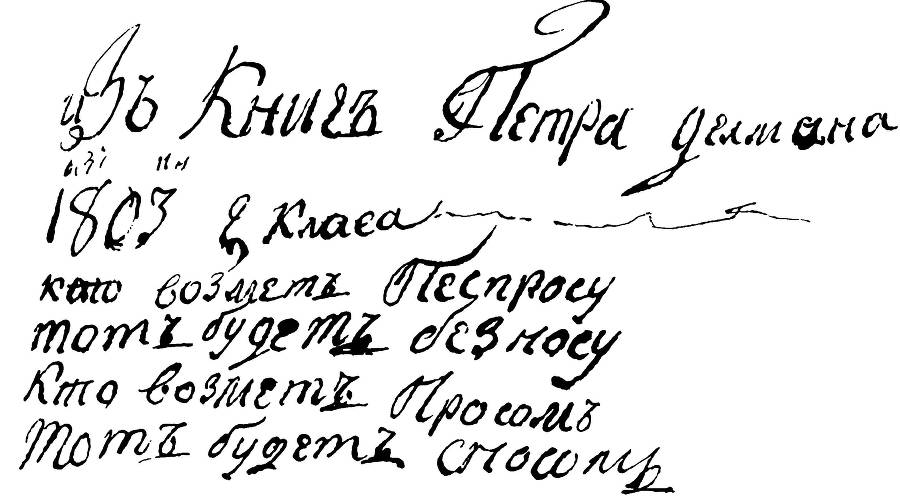 изъ Книгъ Петра делмана
1803 класа
кто возметъ Песпросу
тотъ будетъ безносу
Кто возметъ Просомъ
Тотъ будетъ сносомъ